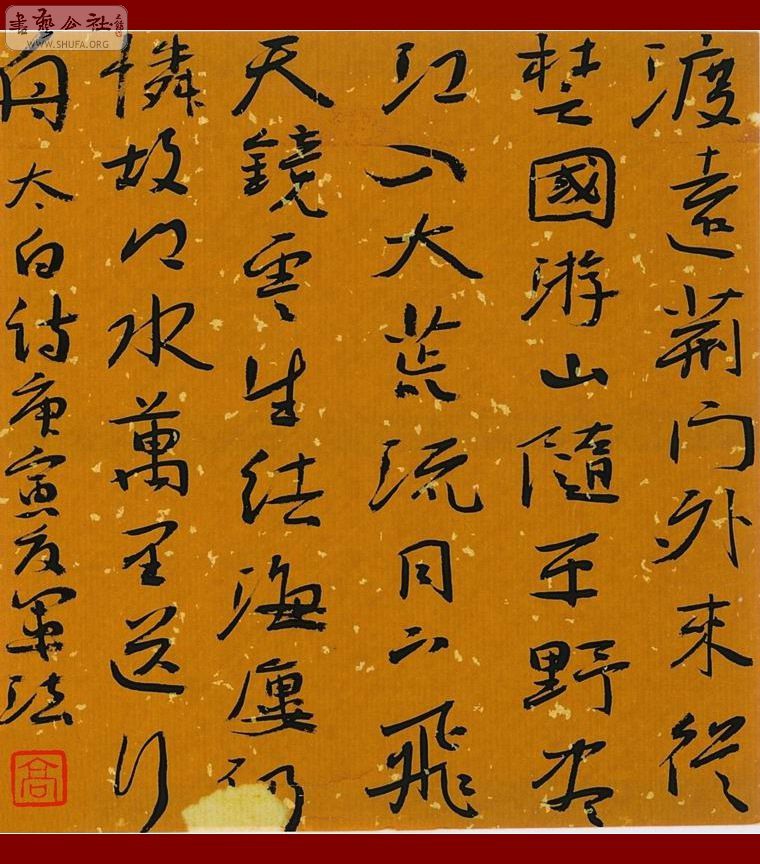 書藝公社
WWW.SHUFA.ORG
渡遠荆門外來從
楚國游山隨平野盡
江入大荒流月下飛
天鏡雲生結海樓仍
憐故鄉水萬里送行
舟太白詩庚寅夏軍法
高